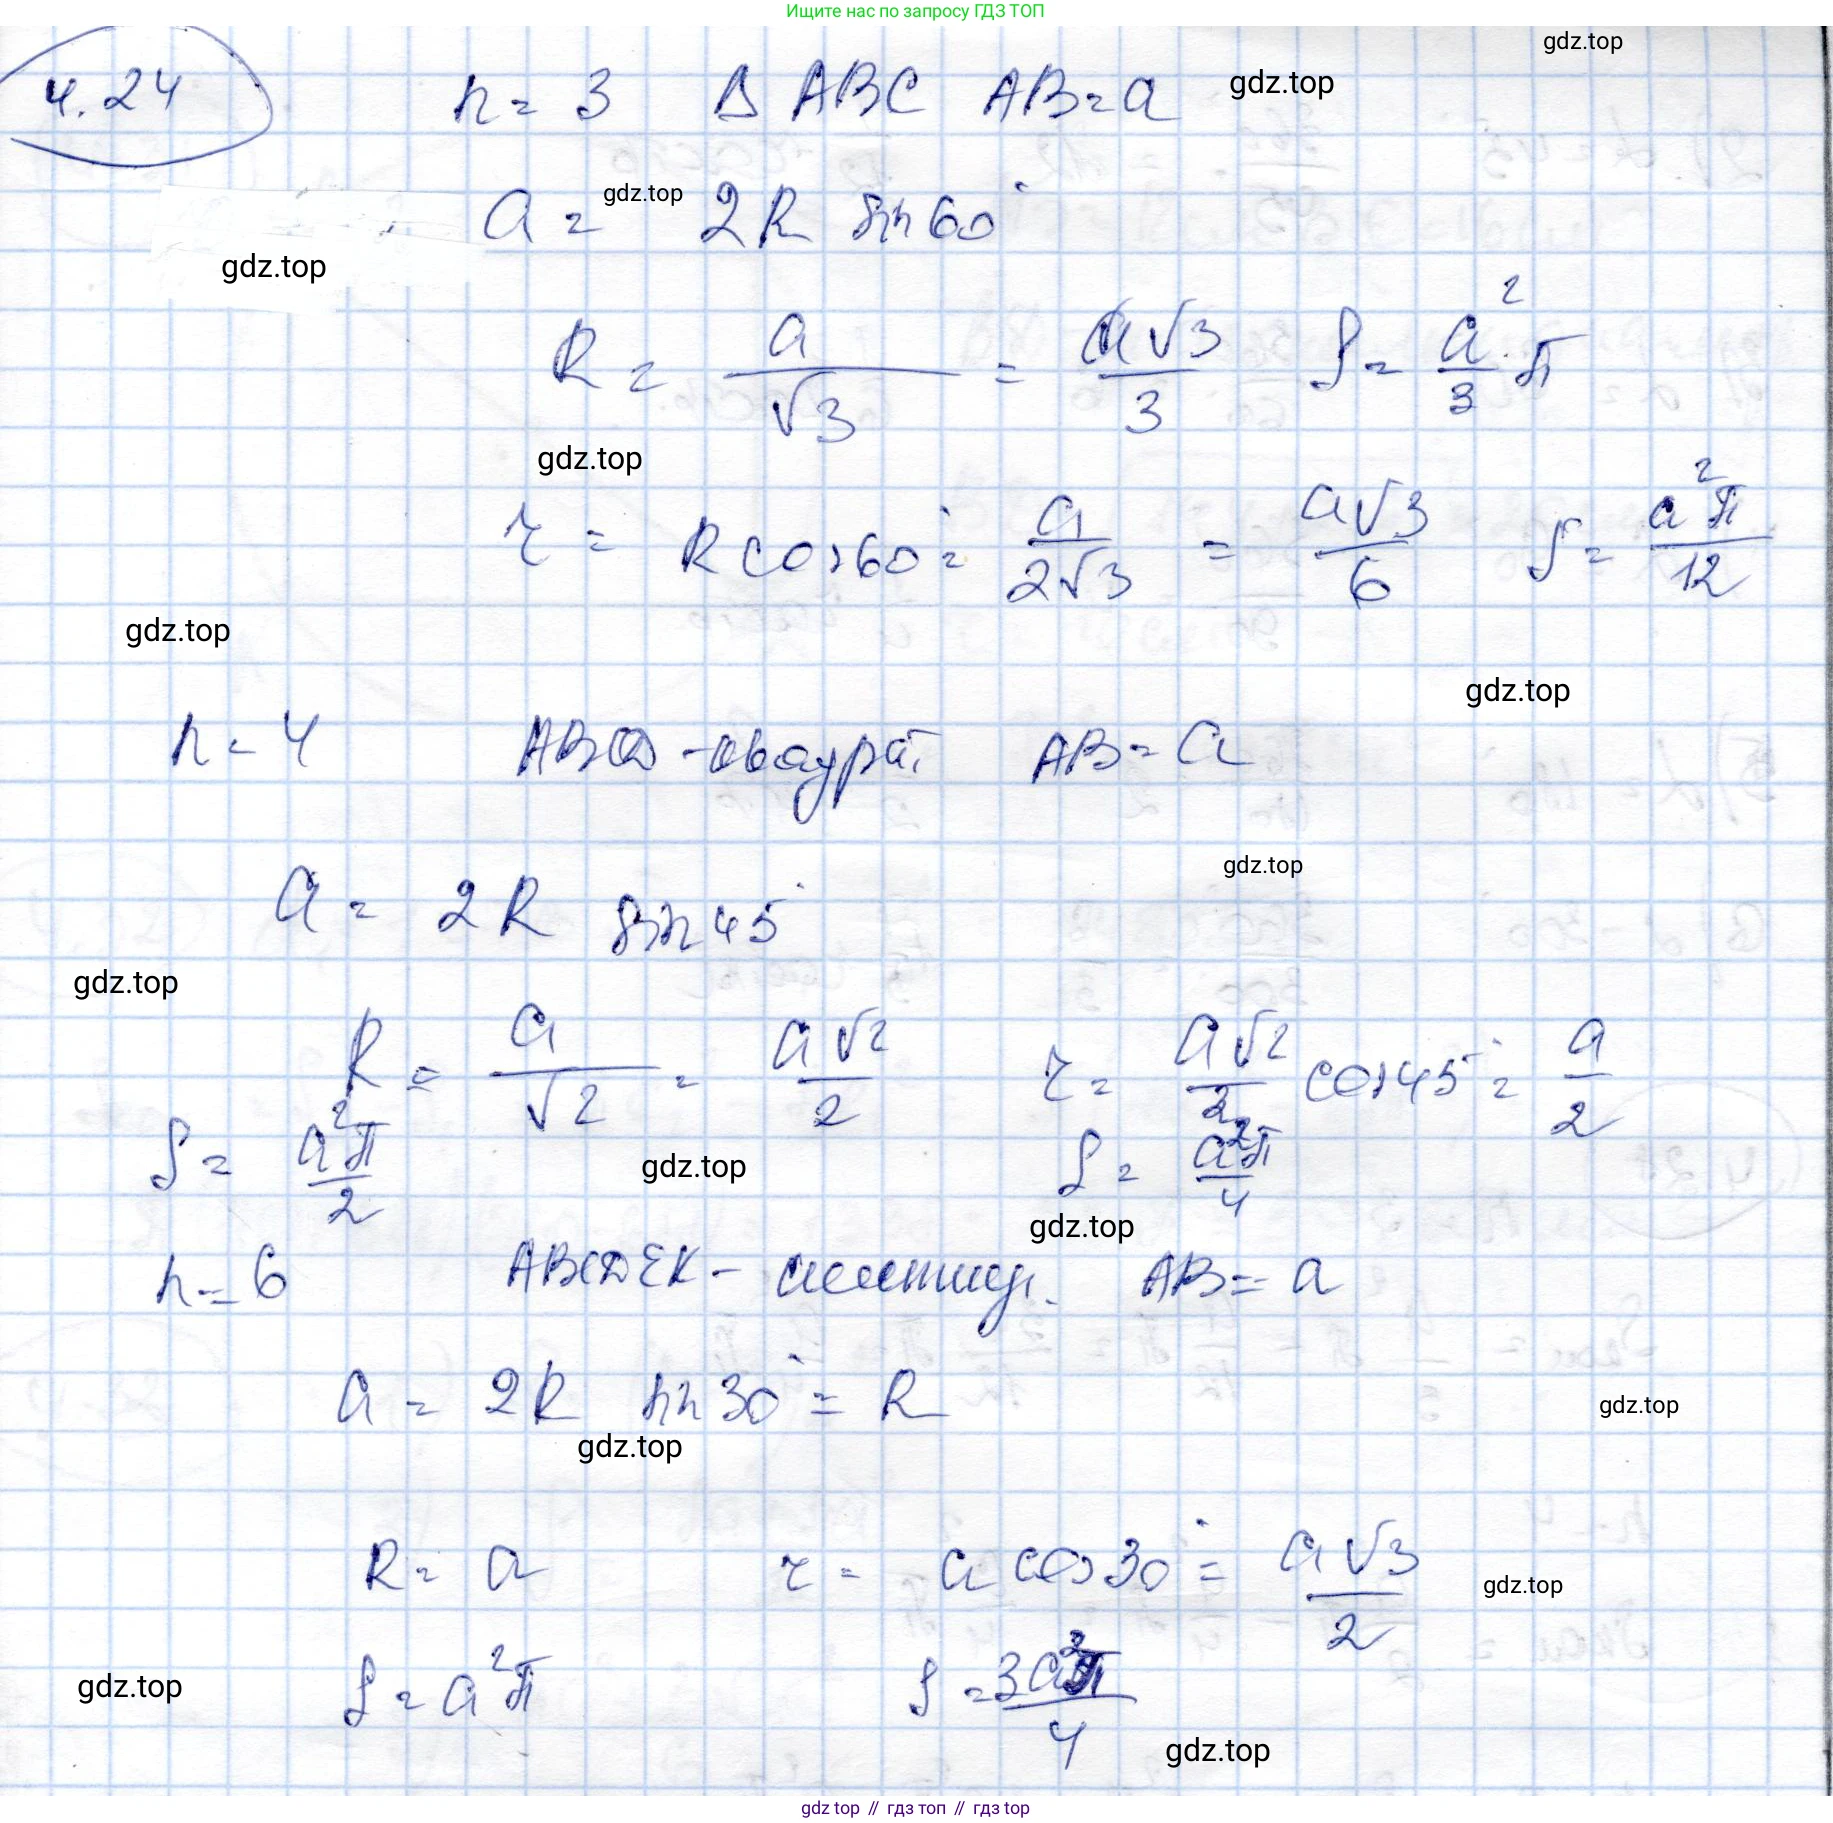 Ищите нас по запросу ГДЗ ТОП
gdz.top
4.24 n = 3 Δ ABC AB = a gdz.top
a = 2R sin 60° gdz.top
gdz.top
R = a/√3 = a√3/3 S = a²/3 · π
gdz.top
r = R cos 60° = a/2√3 = a√3/6 S = a²π/12
gdz.top
gdz.top
n = 4 ABCD - квадрат AB = a
gdz.top
a = 2R sin 45°
gdz.top
R = a/√2 = a√2/2 r = a√2/2 cos 45° = a/2
S = a²π/2 gdz.top S = a²π/4
gdz.top
n = 6 ABCDEK - AB = a
a = 2R sin 30° = R gdz.top
gdz.top
R = a r = a cos 30° = a√3/2 gdz.top
gdz.top S = a²π S = 3a²π/4
gdz.top
gdz top // гдз топ // гдз top